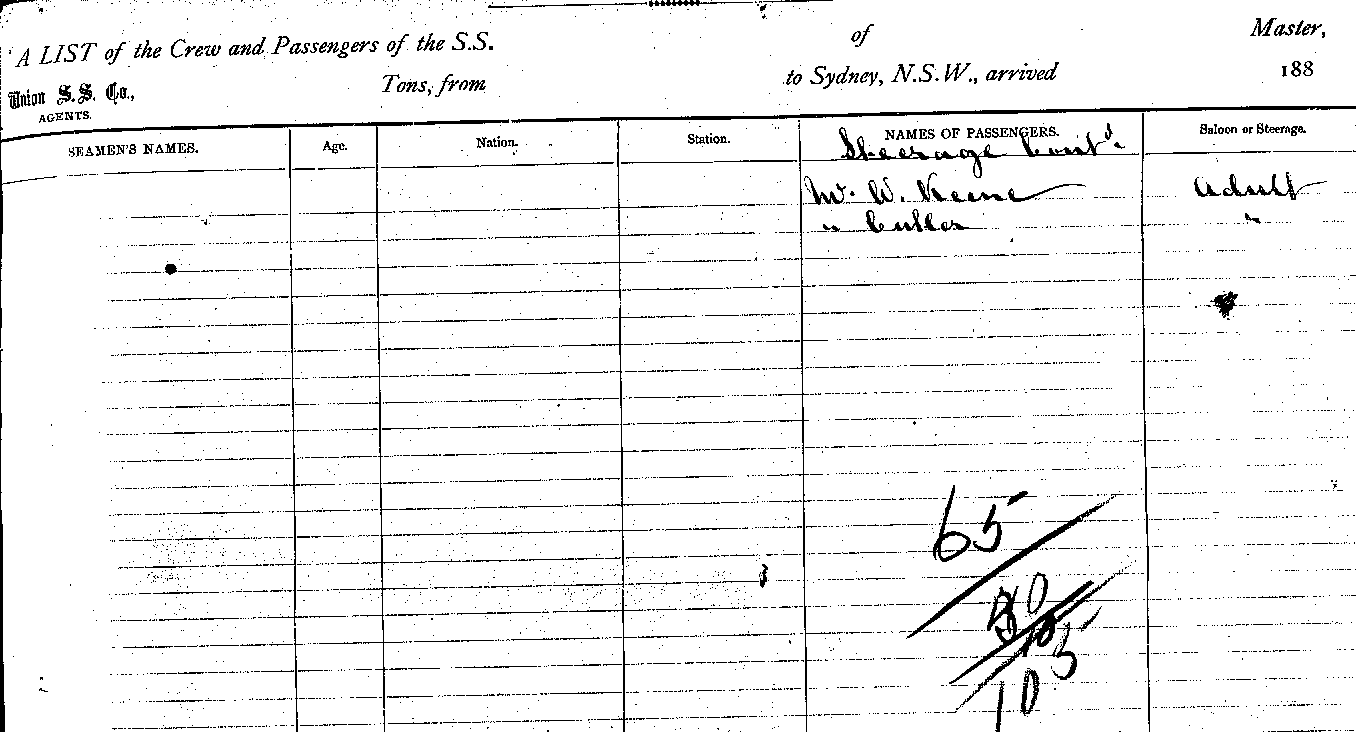 A LIST of the Crew and Passengers of the S.S. of Master,
Union S.S. Co.,
AGENTS.
Tons, from to Sydney, N.S.W., arrived 188
SEAMEN'S NAMES. Age. Nation. Station. NAMES OF PASSENGERS. Saloon or Steerage.
Steerage Cont'd.
Mr. W. Keene Adult
" Cutler "
65